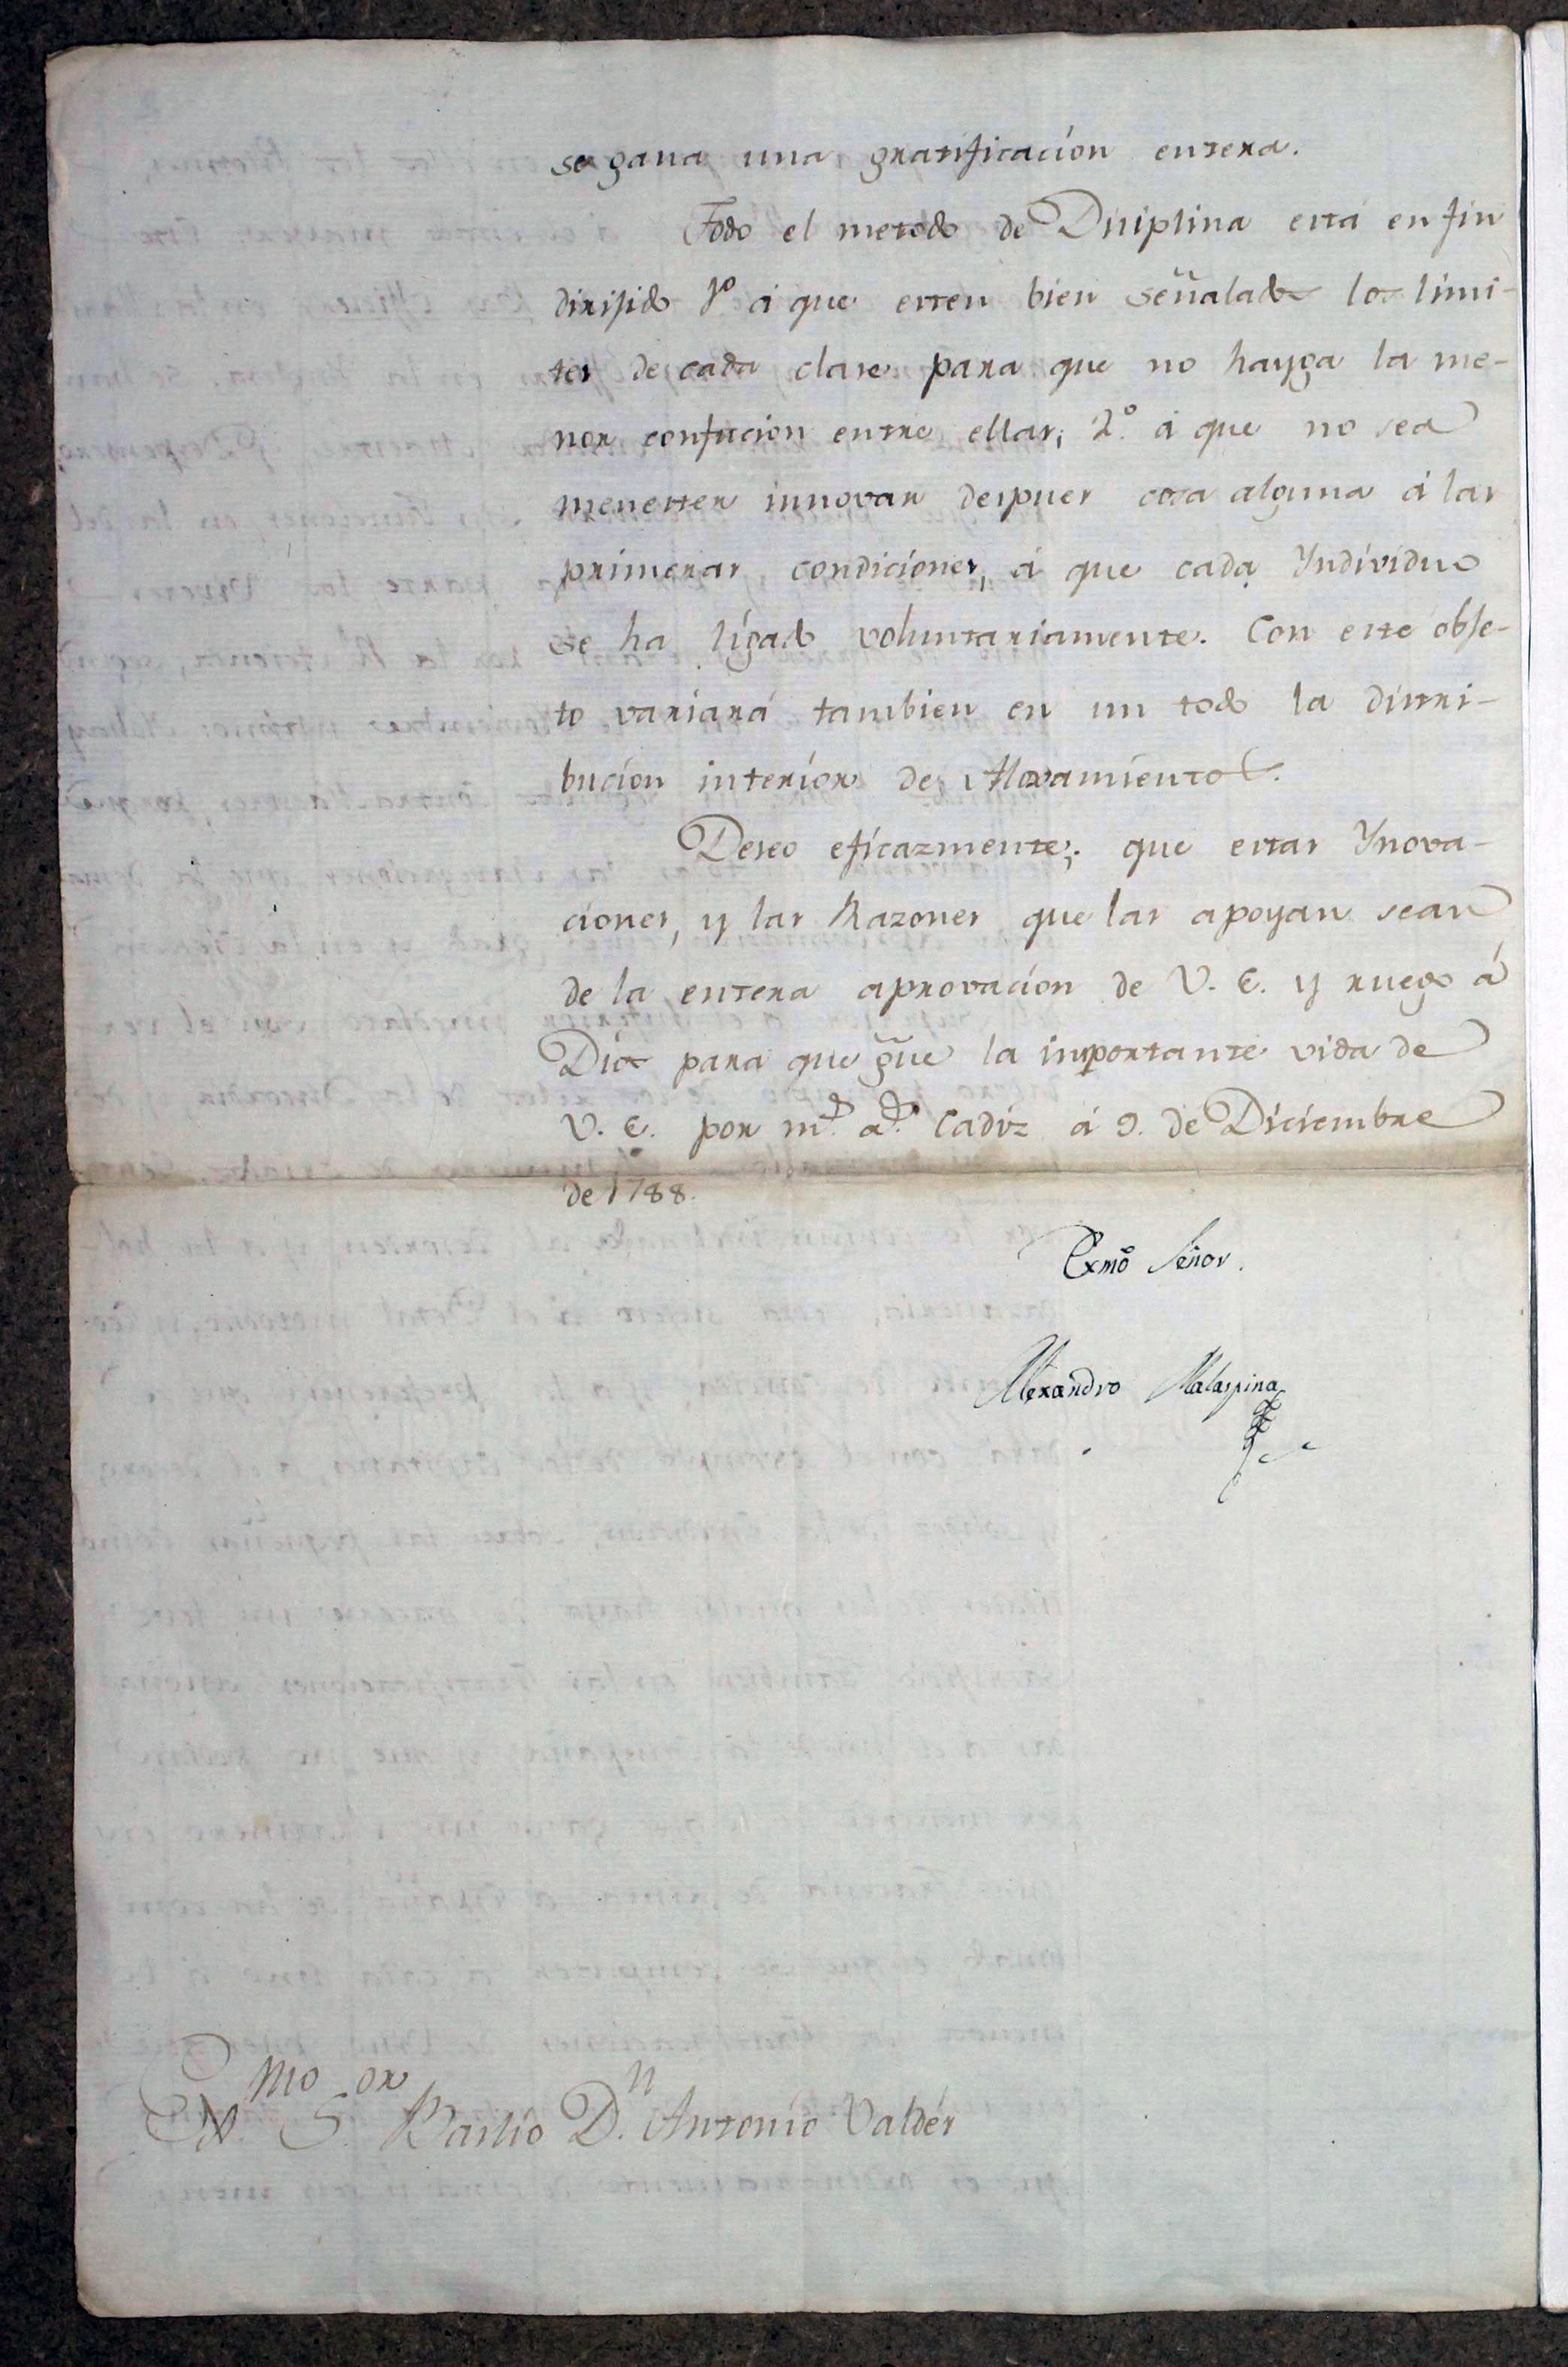 se gana una gratificacion entera.
Todo el metodo de Diciplina está en fin
dirijido 1º á que esten bien señalados los limi-
tes de cada clase para que no hayga la me-
nor confucion entre ellas; 2.º á que no sea
menester innovar despues cosa alguna á las
primeras condiciones, á que cada Yndividuo
se ha ligado voluntariamente. Con este obje-
to variará tambien en un todo la distri-
bucion interior de Aloxamientos.
Deseo eficazmente; que estas Ynova-
ciones, y las Razones que las apoyan sean
de la entera aprovacion de V. E. y ruego á
Dios para que gũe la importante vida de
V. E. por m.s a.s Cadiz á 9. de Diciembre
de 1788.
Exmõ Señor.
Alexandro Malaspina
Ex.mo S.or Baylio D.n Antonio Valdés